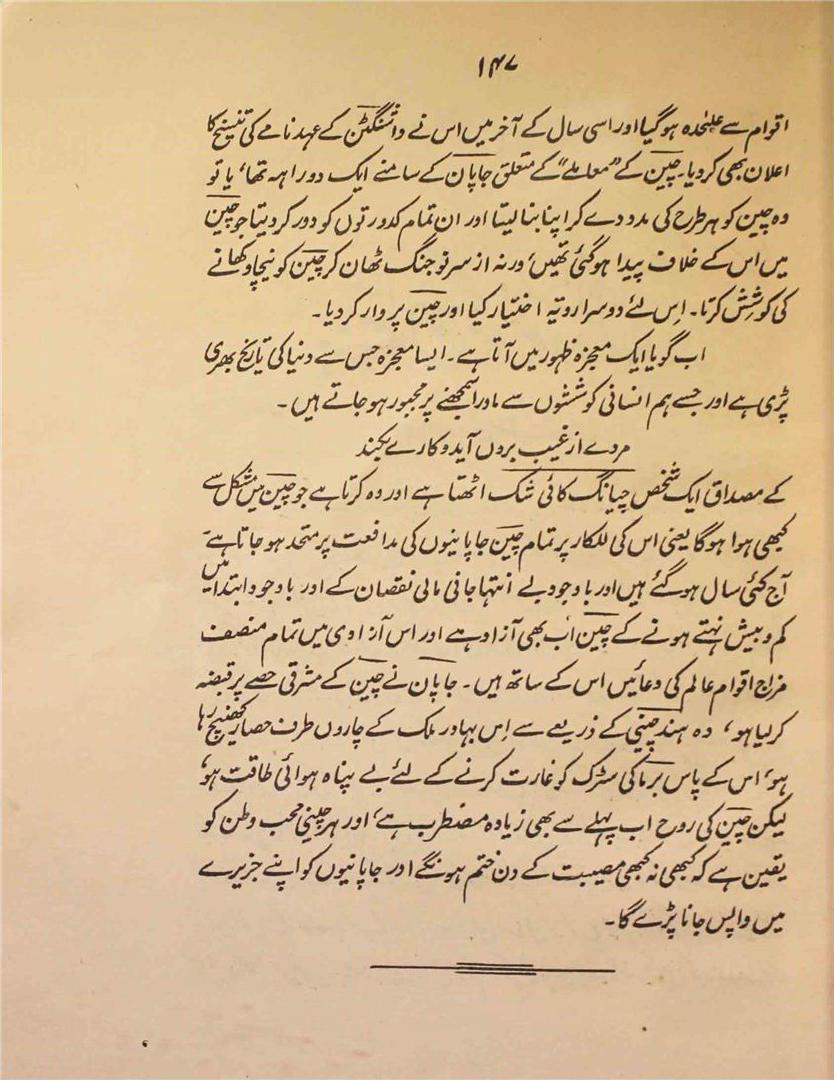 ۱۴۷
اقوام سے علیٰحدہ ہوگیا اور اسی سال کے آخر میں اس نے واشنگٹن کے عہد نامے کی تنسیخ کا
اعلان بھی کر دیا۔ چین کے ”معاملے“ کے متعلق جاپان کے سامنے ایک دوراہہ تھا، یا تو
وہ چین کو ہر طرح کی مدد دے کر اپنا بنا لیتا اور ان تمام کدورتوں کو دور کر دیتا جو چین
میں اس کے خلاف پیدا ہوگئی تھیں، ورنہ از سر نو جنگ ٹھان کر چین کو نیچا دکھانے
کی کوشش کرتا۔ اِس لئے دوسرا رویّہ اختیار کیا اور چین پر وار کر دیا۔
اب گویا ایک معجزہ ظہور میں آتا ہے۔ ایسا معجزہ جس سے دنیا کی تاریخ بھری
پڑی ہے اور جسے ہم انسانی کوششوں سے ماورا سمجھنے پر مجبور ہو جاتے ہیں۔
مردے از غیب بروں آید و کارے بکند
کے مصداق ایک شخص چیانگ کائی شک اٹھتا ہے اور وہ کرتا ہے جو چین میں مشکل سے
کبھی ہوا ہوگا یعنی اس کی للکار پر تمام چین جاپانیوں کی مدافعت پر متحد ہو جاتا ہے۔
آج کئی سال ہوگئے ہیں اور باوجود بے انتہا جانی مالی نقصان کے اور باوجود ابتدا میں
کم و بیش نہتے ہونے کے چین اب بھی آزاد ہے اور اس آزادی میں تمام منصف
مزاج اقوام عالم کی دعائیں اس کے ساتھ ہیں۔ جاپان نے چین کے مشرقی حصے پر قبضہ
کر لیا ہو، وہ ہند چینی کے ذریعے سے اِس بہادر ملک کے چاروں طرف حصار کھینچ رہا
ہو، اس کے پاس برما کی سڑک کو غارت کرنے کے لئے بے پناہ ہوائی طاقت ہو،
لیکن چین کی روح اب پہلے سے بھی زیادہ مضطرب ہے، اور ہر چینی محب وطن کو
یقین ہے کہ کبھی نہ کبھی مصیبت کے دن ختم ہونگے اور جاپانیوں کو اپنے جزیرے
میں واپس جانا پڑے گا۔